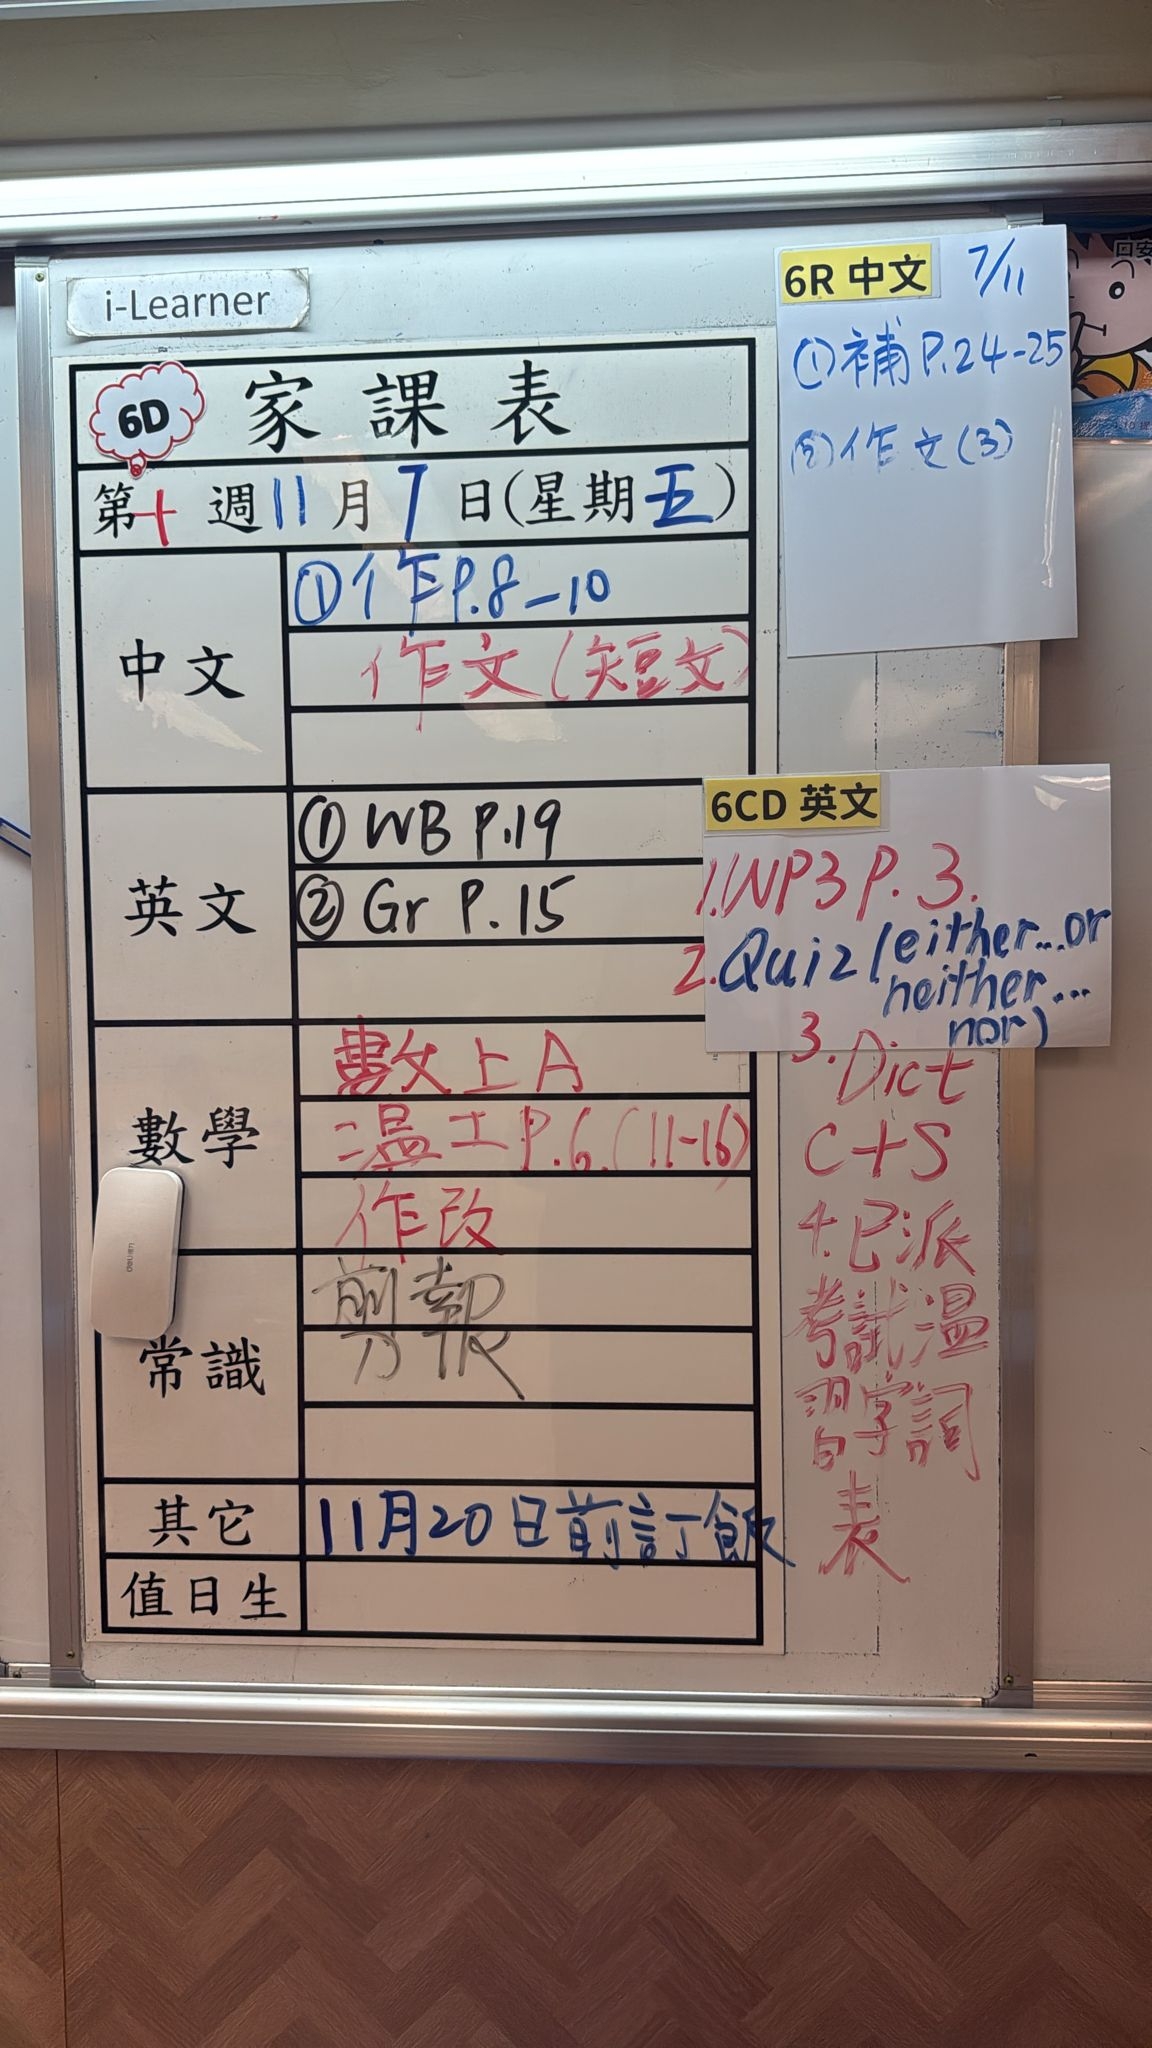 i-Learner
6D 家課表
第十週11月7日(星期五)
中文
①作P.8-10
作文(短文)
英文
①WB P.19
②Gr P.15
數學
數上A
溫工P.6.(11-16)
作改
常識
剪報
其它
11月20日前訂飯
值日生
6R 中文 7/11
①補P.24-25
②作文(3)
6CD 英文
1.NP3 P.3.
2.Quiz(either...or
neither...
nor)
3.Dict
C+S
4.已派
考試溫
習字詞
表
deli得力